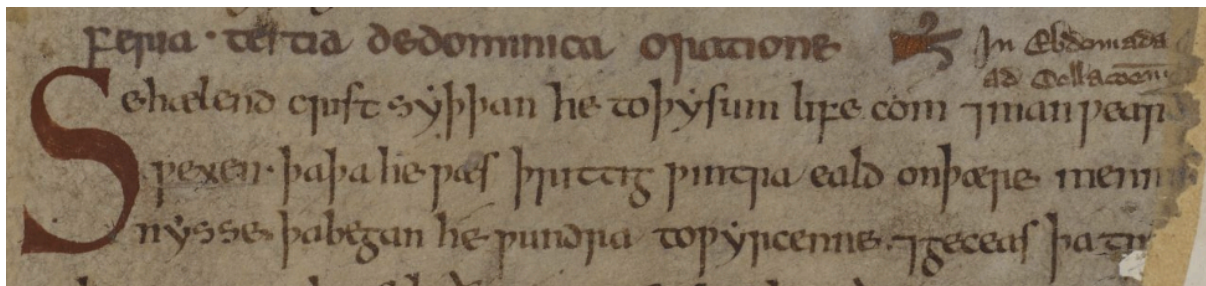 Feria · tertia dedominica oratione
In Ebdomada
ad Collacōem
Sehælend crist syþþan he toþysum life com ⁊man ƿearð
ƿexen· þaþa he ƿæs þrittig ƿintra eald onþære menni
nysse· þabegan he ƿundra toƿyrcenne· ⁊geceas þa